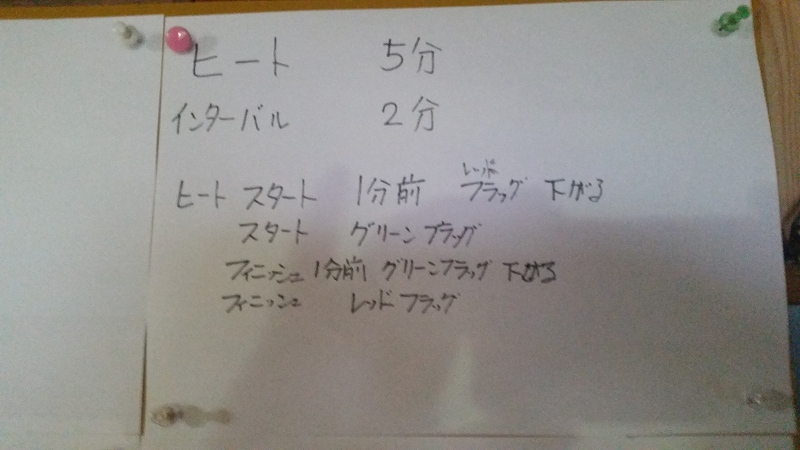 ヒート 5分
インターバル 2分
ヒート スタート 1分前 レッドフラッグ 下がる
スタート グリーンフラッグ
フィニッシュ 1分前 グリーンフラッグ 下がる
フィニッシュ レッドフラッグ